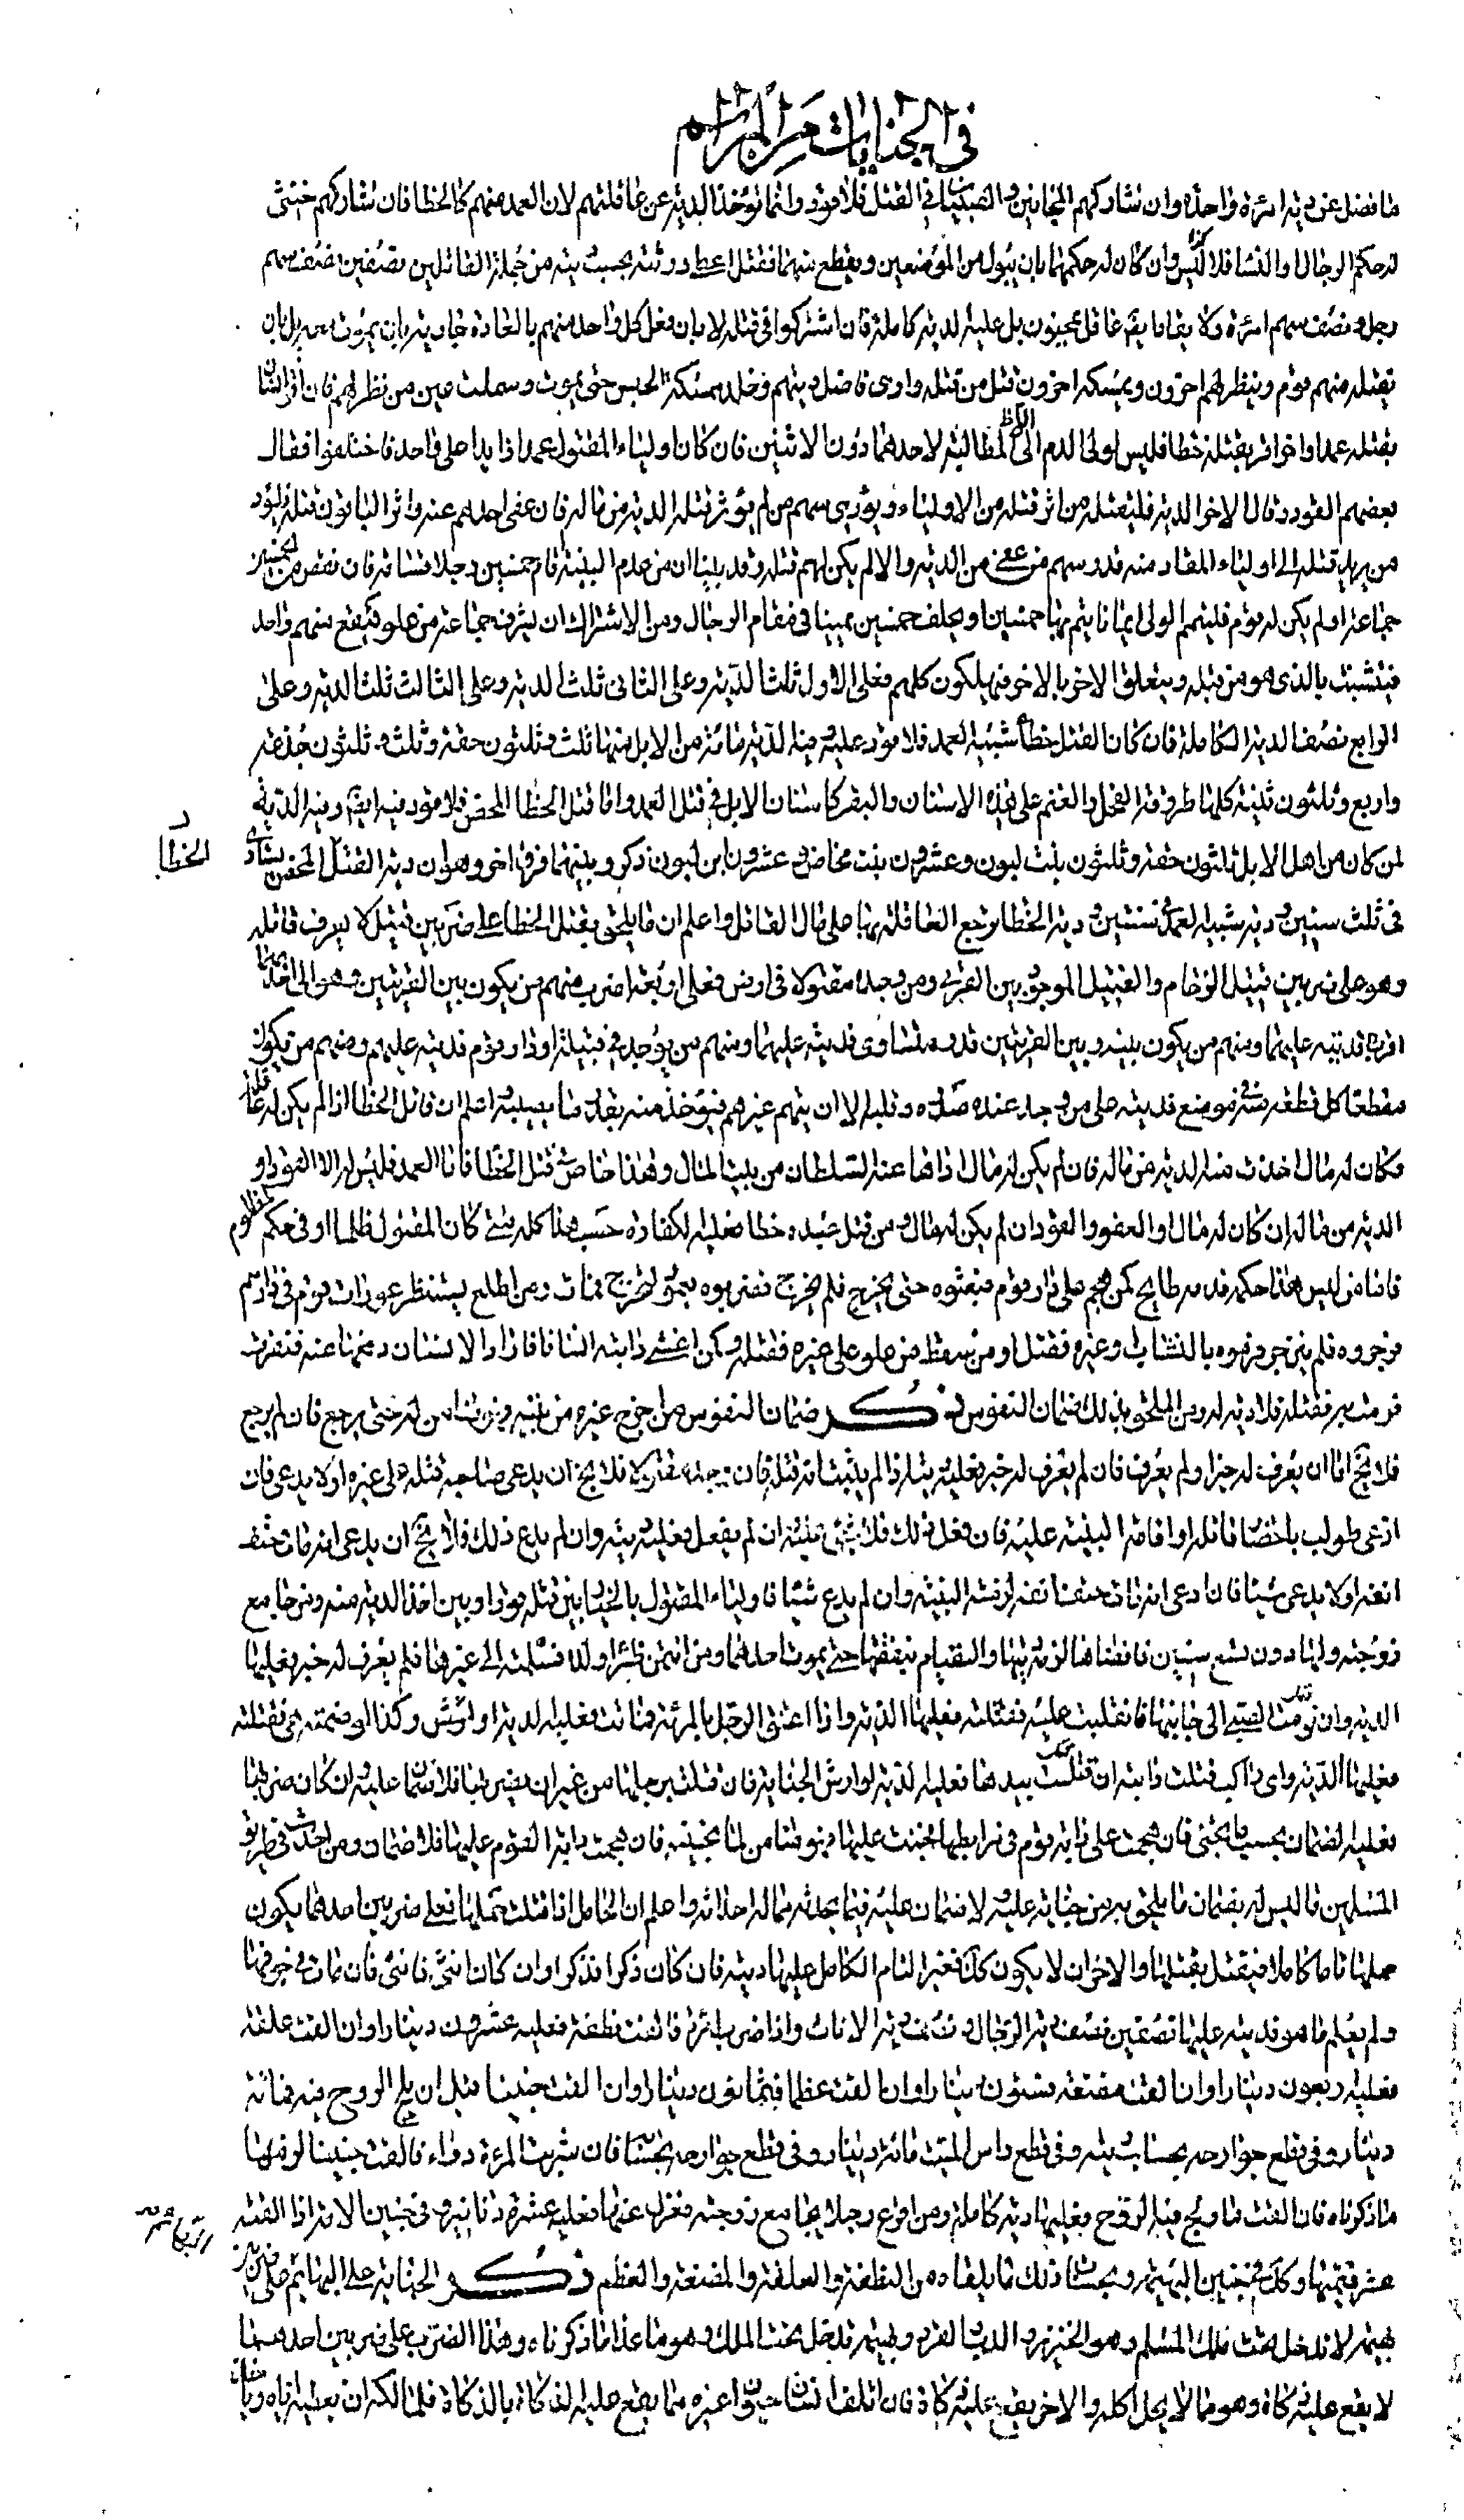 في الجنايات من المراسم
ما فضل عن دية امرأة واحدة وان شاركهم المجانين والصبيان في القتل فلا قود وانما تؤخذ الدية عن عاقلتهم لان العمد منهم كالخطا فان شاركهم خنثى
له حكم الرجال او النسا فلا لبس وان كان له حكمهما بان يبول من الموضعين ويقطع منهما فقتل اعطى ورثته بحسب ديته من جملة القاتلين بنصفين نصف سهم
رجل ونصف سهم امرأة ولا يقاد بقر عاقل بمجنون بل عليه الدية كاملة فان اشتركوا في قتله لا بان فعل كل واحد منهم بالعادة جارية بان يموت معه بل بان
يقتله منهم قوم وينظر لهم اخرون ويمسكه اخرون قتل من قتله وادى فاضل ديتهم وخلد ممسكه الحبس حتى يموت وسملت عين من نظر لهم فان اقر انسان
بقتله عمدا واخر اقر بقتله خطا فليس لولي الدم الا المطالبة لاحدهما دون الاثنين فان كان اولياء المقتول عمدا زايدا على واحد فاختلفوا فقال
بعضهم القود وقال الاخر الدية فليقتله من اثر قتله من الاولياء ويؤدي سهم من لم يؤثر قتله الدية من ماله فان عفى احدهم عنه واثر الباقون قتله فليؤد
من يريد قتله الى اولياء المقاد منه قدر سهم من عفى من الدية والا لم يكن لهم قتله وقد بينا ان من عدم البينة اقام خمسين رجلا قسامة فان نقص من الخمسين
جماعة او لم يكن له قوم فليتمم الولي ايمانا يتم بها خمسين او يحلف خمسين يمينا في مقام الرجال ومن الاشتراك ان يشرف جماعة من علو فيقع منهم واحد
فيتشبث بالذي هو من قبله ويتعلق الاخر بالاخر فيهلكون كلهم فعلى الاول ثلث الدية وعلى الثاني ثلث الدية وعلى الثالث ثلث الدية وعلى
الرابع نصف الدية الكاملة فان كان القتل خطأ شبيه العمد فلا قود عليه فيه الدية مائة من الابل منها ثلث وثلثون حقة وثلث وثلثون جذعة
واربع وثلثون ثنية كلها طروقة الفحل والغنم على هذه الاسنان والبقر كاسنان الابل في قتل العمد واما قتل الخطا المحض فلا قود فيه ايضا وفيه الدية
لمن كان من اهل الابل ثلثون حقة وثلثون بنت لبون وعشرون بنت مخاض وعشرون ابن لبون ذكر وبينهما فرق اخر وهو ان دية القتل المحض يستادى
الخطا
في ثلث سنين ودية شبيه العمد في سنتين ودية الخطا ترجع العاقلة بها على مال القاتل واعلم ان ما يلحق بقتل الخطا على ضربين قتيل لا يعرف قاتله
وهو على ضربين قتيل الزحام والقتيل الموجود بين القرى ومن وجد مقتولا في ارض فعلى اربعة اضرب منهم من يكون بين القريتين وهو الى احدهما
اقرب فديته عليهما ومنهم من يكون بينه وبين القريتين قدر متساوي فديته عليهما ومنهم من يوجد في قبيلة او دار قوم فديته عليهم ومنهم من يكون
مقطعا كل قطعة منه في موضع فديته على من وجد عنده صدره وقلبه الا ان يتهم غيرهم فيؤخذ منه بعد ما يبينه اعلم ان قاتل الخطا اذا لم يكن له عاقلة
وكان له مال اخذت منه الدية من ماله فان لم يكن له مال اداها عنه السلطان من بيت المال وهذا خاص في قتل الخطا فاما العمد فليس له الا القود او
الدية من ماله ان كان له مال او العفو والقود ان لم يكن له مال ومن قتل عبده خطا فعليه الكفارة حسب هذا كله متى كان المقتول ظلما او في حكم المظلوم
فاما من ليس هذا حكمه فدمه طايح كمن هجم على دار قوم فبغتوه حتى يخرج فلم يخرج فضربوه بعمود ليخرج فمات ومن اطلع يستنظر عورات قوم في دارهم
فزجروه فلم ينزجر فرموه بالنشاب وغيره فقتل او من سقط من علو على غيره فقتله ومن اغشى دابته انسانا فاراد الانسان دفعها عنه فنفرت
فرمت به فقتله فلا دية له ومن الملحق بذلك ضمان النفوس ذكر ضمان النفوس من اخرج غيره من بيته فهو ضامن له حتى يرجع فان لم يرجع
فلا يخ اما ان يعرف له خبر او لم يعرف فان لم يعرف له خبر فعليه ديته اذا لم يثبت انه قتله فان وجد مقتولا فلا يخ ان يدعى صاحبه قتله على غيره او لا يدعى فان
ادعى طولب باحضار قاتله او اقامة البينة عليه فان فعل ذلك فلا شئ عليه وان لم يفعل فعليه ديته وان لم يدع ذلك فلا يخ ان يدعى انه مات حتف
انفه او لا يدعى شيئا فان ادعى انه مات حتف انفه لزمته البينة وان لم يدع شيئا فاولياء المقتول بالخيار بين قتله قودا وبين اخذ الدية منه ومن جامع
زوجته ولها دون تسع سنين فافضاها لزمه ديتها والقيام بنفقتها حتى يموت احدهما ومن ائتمن ظئرا ولده فسلمته الى غيرها فلم يعرف له خبر فعليها
الدية وان نومت الصبي الى جانبها فانقلبت عليه فقتلته فعليها الدية واذا اعنق الرجل بالمرئة فماتت فعليه الدية او ارش وكذا لو ضمته هي فقتلته
فعليها الدية واي راكب قتلت دابته ان قتلت بيدها فعليه الدية او ارش الجناية فان قتلت برجلها من غير ان يضربها فلا ضمان عليه ان كان ضربها
فعليه الضمان بحسب ما تجني فان هجمت على دابة قوم في مرابطها فجنت عليها فهو ضامن لما تجنيه فان هجمت دابة القوم عليها فلا ضمان ومن احدث في طريق
المسلمين ما ليس له يضمان ما يلحق به من جناية عليه لا ضمان عليه فيما يحدثه ما له احداثه واعلم ان الحامل اذا قتلت حملها فعلى ضربين احدهما يكون
حملها تاما كاملا فيقتل بقتلها والاخر ان لا يكون كك فغير التام الكامل عليها ديته فان كان ذكرا فذكرا وان كان انثى فانثى فان مات في جوفها
ولم يعلم ما هو فديته عليها نصفين نصف دية الرجال ونصف دية الاناث واذا ضرب امرأة فالقت نطفة فعليه عشرون دينارا وان القت علقة
فعليه اربعون دينارا وان القت مضغة فستون دينارا وان القت عظما فثمانون دينارا وان القت جنينا قبل ان يلج الروح فيه فمائة
دينار وفي قطع جوارحه بحساب ديته وفي قطع راس الميت مائة دينار وفي قطع جوارحه بحسابه فان شربت المرءة دواء فالقت جنينا لزمها
ما ذكرناه فان القت ما ولج فيه الروح فعليها دية كاملة ومن افزع رجلا يجامع زوجته فعزل عنها فعليه عشرة دنانير وفي جنين الامة اذا القته
عشر قيمتها وكك في جنين البهيمة وبحساب ذلك ما يلقاه من النطفة والعلقة والمضغة والعظم ذكر الجناية على البهائم على ضربين
بهيمة لا تدخل تحت ملك المسلم وهو الخنزير والدب القرد وبهيمة تدخل تحت الملك وهو ما عدا ما ذكرناه وهذا الضرب على ضربين احدهما
لا يقع عليه ذكاة وهو ما لا يحل اكله والاخر يقع عليه ذكاة فان اتلف انسان حيوان غيره مما يقع عليه الذكاة بالذكاة فلمالكه ان يعطيه اياه ويا